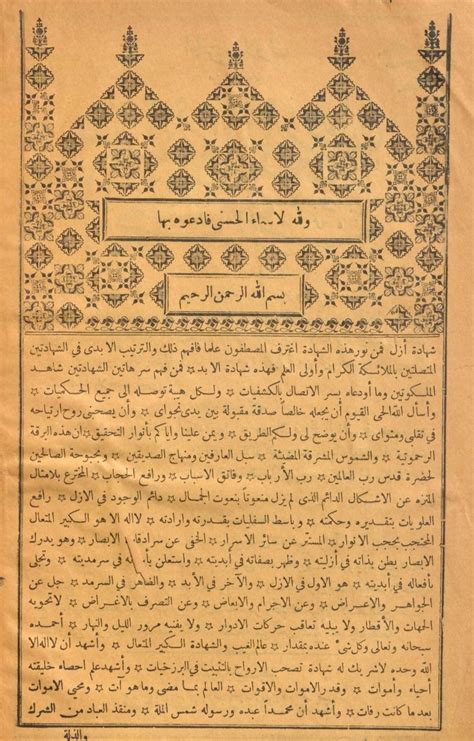 ولله الاسماء الحسنى فادعوه بها
بسم الله الرحمن الرحيم
شهادة أزل فمن نور هذه الشهادة اغترف المصطفون علما فافهم ذلك والترتيب الابدى فى الشهادتين
المتصلتين بالملائكة الكرام وأولى العلم فهذه شهادة الابد * فمن فهم سر هاتين الشهادتين شاهد
الملكوتين وما أودعاه بسر الاتصال بالكشفيات * ولكل هيبة توصله الى جميع الحكميات *
وأسأل الله الحى القيوم أن يجعله خالصاً صدقة مقبولة بين يدى نجواى * وأن يصحبنى روح ارتياحه
فى تقلبى ومثواى * وأن يوضح لى ولكم الطريق * ويمن علينا واياكم بأنوار التحقيق * ان هذه الرقة
الرحموتية * والشموس المشرقة المضيئة * سبل العارفين ومنهاج الصديقين * وبحبوحة الصالحين
لحضرة قدس رب العالمين * رب الأرباب * وفاتق الاسباب * ورافع الحجاب * المخترع بلا مثال
المنزه عن الاشكال الدائم الذى لم يزل منعوتاً بنعوت الجمال * دائم الوجود فى الازل * رافع
العلويات بتقديره وحكمته * وباسط السفليات بقدرته وارادته * لااله الا هو الكبير المتعال
المحتجب بحجب الانوار * المستتر عن سائر الاسرار * الخفى عن سرادقات الابصار * وهو يدرك
الابصار بطن بذاته فى أزليته * وظهر بصفاته فى أبديته * واستعلن بأسمائه فى سرمديته * وتجلى
بأفعاله فى أبديته * هو الاول فى الازل * والآخر فى الأبد * والظاهر فى السرمد * جل عن
الجواهر والاعراض * وعن الاجرام والابعاض * وعن التصرف بالاغراض * لاتحويه
الجهات والأقطار ولا يبليه تعاقب حركات الادوار * ولا يفنيه مرور الليل والنهار * أحمده
سبحانه وتعالى وكل شئ عنده بمقدار * عالم الغيب والشهادة الكبير المتعال * وأشهد أن لااله الا
الله وحده لاشريك له شهادة تصحب الارواح بالتثبيت فى البرزخيات * وأشهد علم احصاء خليقته
أحياء وأموات * وقدر الاموات والاقوات * العالم بما مضى وما هو آت * ومحيى الاموات
بعد ما كانت رفات * وأشهد أن محمداً عبده ورسوله شمس الملة * ومنقذ العباد من الشرك
والذلة